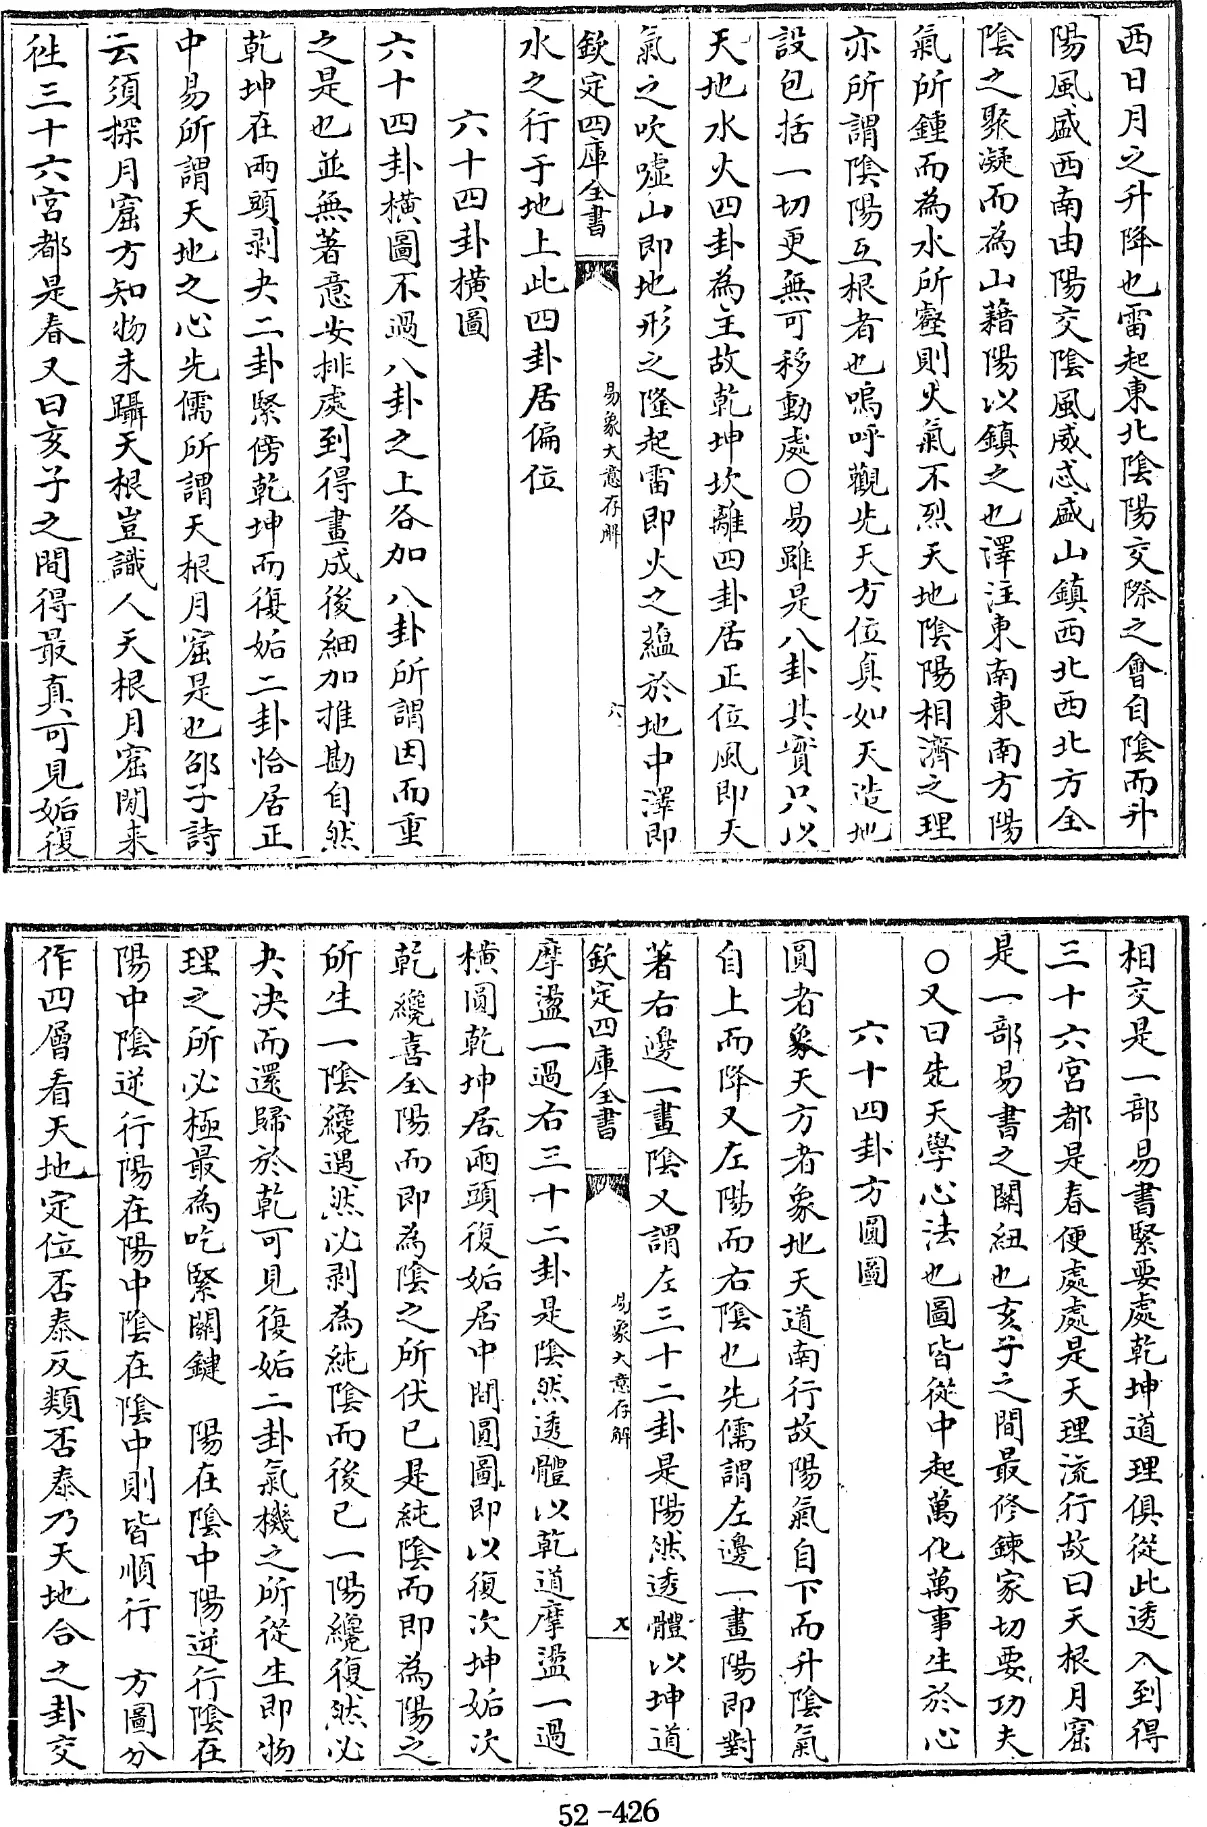 西日月之升降也雷起東北陰陽交際之會自隂而升
陽風盛西南由陽交陰風威忒盛山鎮西北西北方全
陰之聚凝而為山藉陽以鎮之也澤注東南東南方陽
氣所鍾而為水所壑則火氣不烈天地陰陽相濟之理
亦所謂陰陽互根者也嗚呼觀先天方位真如天造地
設包括一切更無可移動處○易雖是八卦其實只以
天地水火四卦為主故乾坤坎離四卦居正位風即天
氣之吹噓山即地形之隆起雷即火之蘊於地中澤即
欽定四庫全書 易象大意存解 六
水之行于地上此四卦居偏位
六十四卦橫圖
六十四卦橫圖不過八卦之上各加八卦所謂因而重
之是也並無著意安排處到得畫成後細加推勘自然
乾坤在兩頭剥夬二卦緊傍乾坤而復姤二卦恰居正
中易所謂天地之心先儒所謂天根月窟是也邵子詩
云須探月窟方知物未躡天根豈識人天根月窟閒來
徃三十六宮都是春又曰亥子之間得最真可見姤復
相交是一部易書緊要處乾坤道理俱從此透入到得
三十六宮都是春便處處是天理流行故曰天根月窟
是一部易書之關紐也亥子之間最修鍊家切要功夫
○又曰先天學心法也圖皆從中起萬化萬事生於心
六十四卦方圓圖
圓者象天方者象地天道南行故陽氣自下而升陰氣
自上而降又左陽而右陰也先儒謂左邊一畫陽即對
著右邊一畫陰又謂左三十二卦是陽然透體以坤道
欽定四庫全書 易象大意存解
摩盪一過右三十二卦是陰然透體以乾道摩盪一過
橫圓乾坤居兩頭復姤居中間圓圖即以復次坤姤次
乾纔喜全陽而即為陰之所伏已是純陰而即為陽之
所生一陰纔遇然必剥為純陰而後已一陽纔復然必
夬決而還歸於乾可見復姤二卦氣機之所從生即物
理之所必極最為吃緊關鍵 陽在陰中陽逆行陰在
陽中陰逆行陽在陽中陰在陰中則皆順行 方圖分
作四層看天地定位否泰反類否泰乃天地合之卦交
52-426